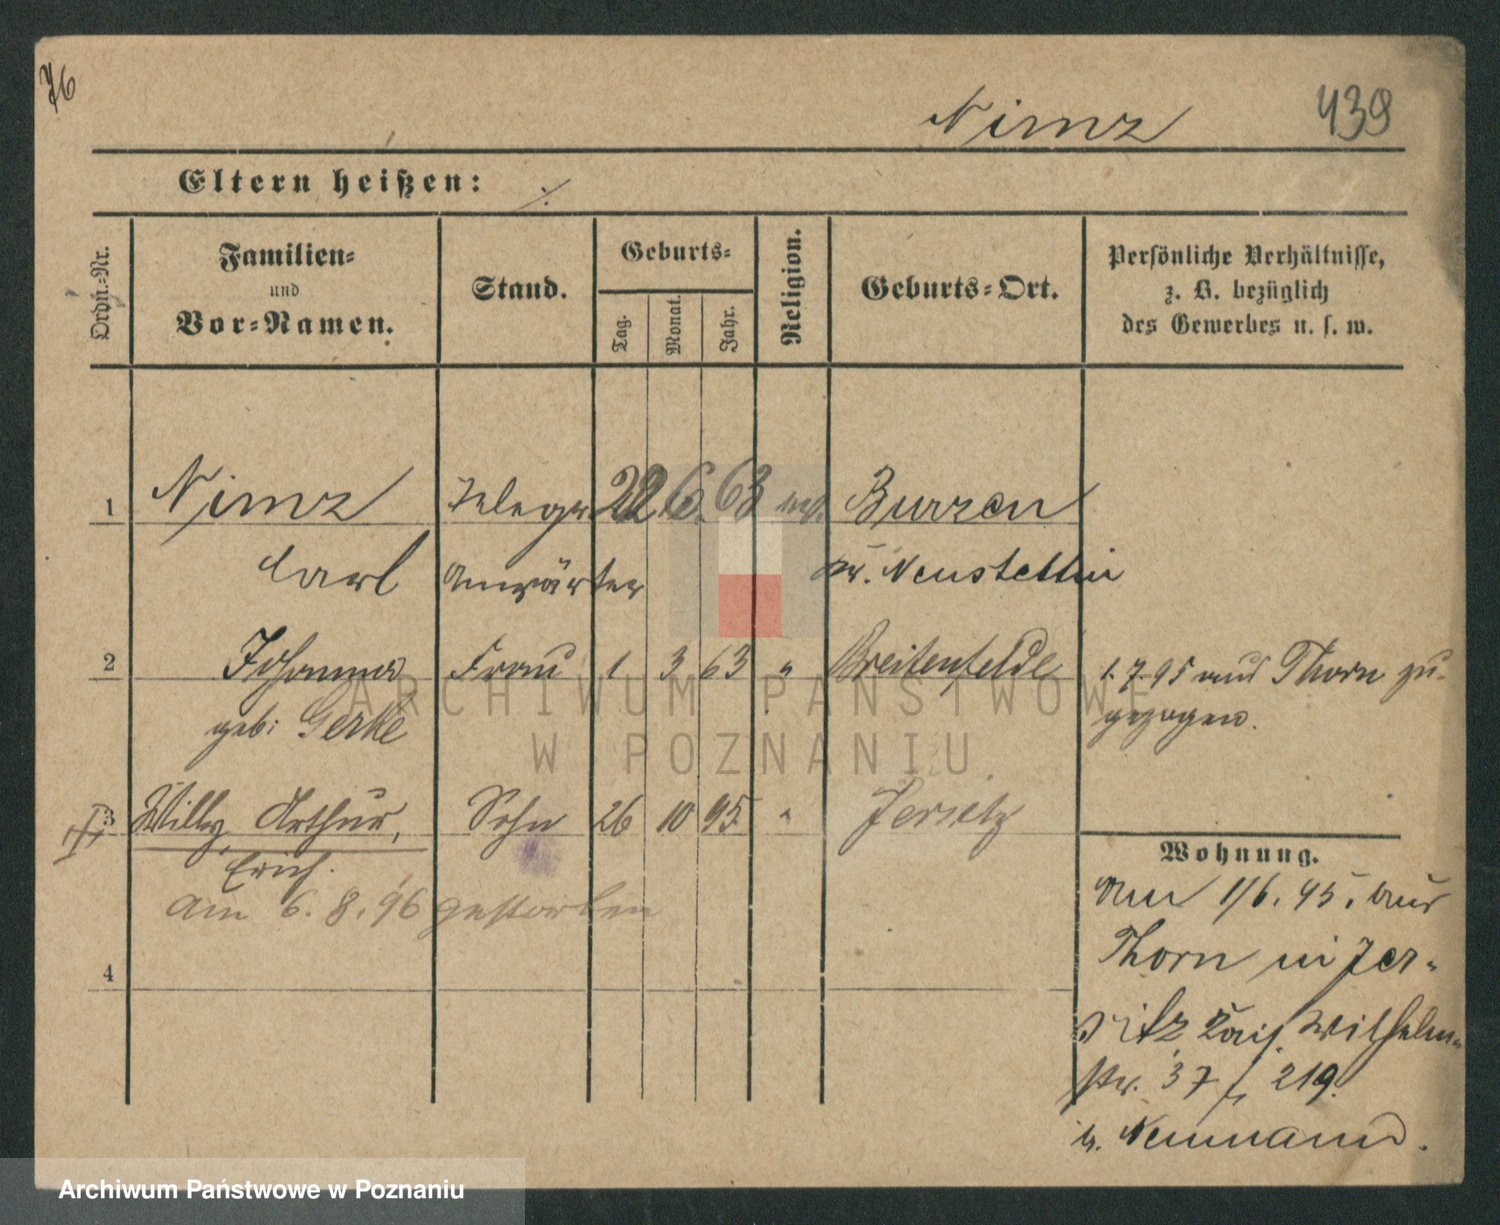 76
Nimz
439
Eltern heißen: ·/·
Ordn.-Nr.
Familien-
und
Vor-Namen.
Stand.
Geburts-
Tag.
Monat.
Jahr.
Religion.
Geburts-Ort.
Persönliche Verhältnisse,
z. B. bezüglich
des Gewerbes u. s. w.
1 Nimz Telegr. 22 6. 63 ev. Burzen
Carl Anwärter Kr. Neustettin
2 Johanna Frau 1 3 63 " Breitenfelde 1. 7. 95 aus Thorn zu-
geb: Gerke gezogen.
3 Willy Arthur, Sohn 26 10 95 " Jersitz
Erich.
am 6. 8. 96 gestorben
4
Wohnung.
Am 1/6. 95. aus
Thorn in Jer-
sitz Kais. Wilhelm-
str. 37 219.
b. Neumann.
ARCHIWUM PAŃSTWOWE
W POZNANIU
Archiwum Państwowe w Poznaniu